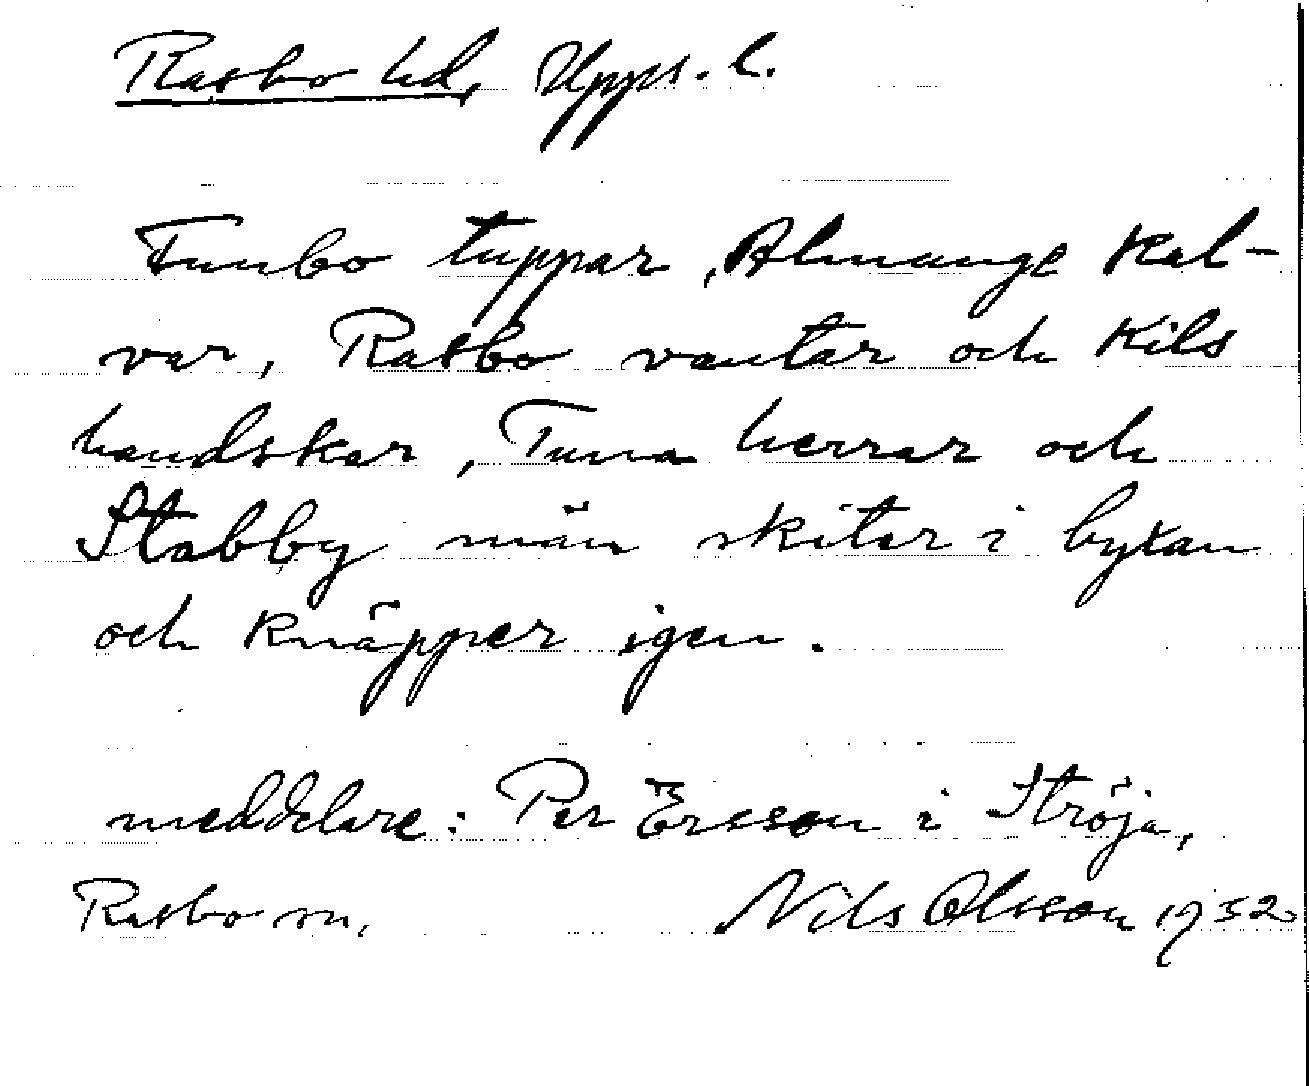 Rasbo hd, Upps. l.
Funbo tuppar, Almunge kal-
var, Rasbo vantar och Kils
handskar, Tuna herrar och
Stabby män skiter i byxan
och knäpper igen.
meddelare: Per Ersson i Ströja,
Rasbo sn,
Nils Olsson 1932